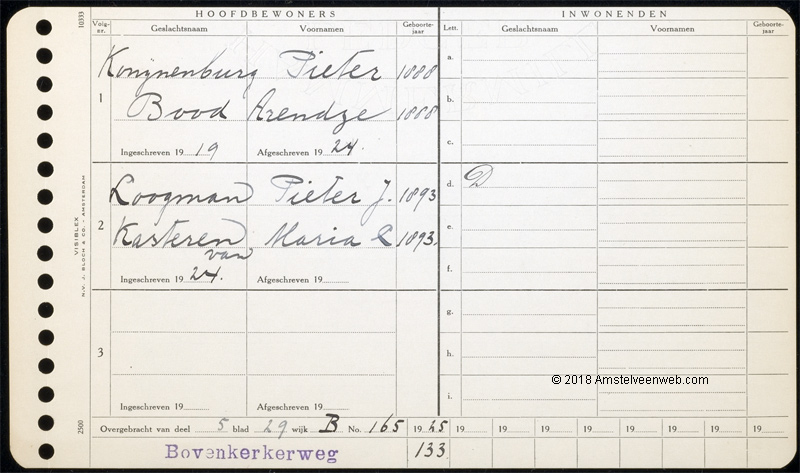 HOOFDBEWONERS INWONENDEN
Volg-nr. Geslachtsnaam Voornamen Geboorte-jaar Lett. Geslachtsnaam Voornamen Geboorte-jaar
10333
1
Konijnenburg Pieter 1888
Bood Arendje 1888
Ingeschreven 19 19 Afgeschreven 19 24.
2
Loogman Pieter J. 1893
Kasteren van Maria C 1893.
Ingeschreven 19 24. Afgeschreven 19
3
Ingeschreven 19 Afgeschreven 19
a.
b.
c.
d. D
e.
f.
g.
h.
i.
VISIBLEX
N.V. J. BLOCH & CO. - AMSTERDAM
2500
© 2018 Amstelveenweb.com
Overgebracht van deel 5 blad 29 wijk B No. 165 19 25 19 19 19 19 19 19 19 19
Bovenkerkerweg 133